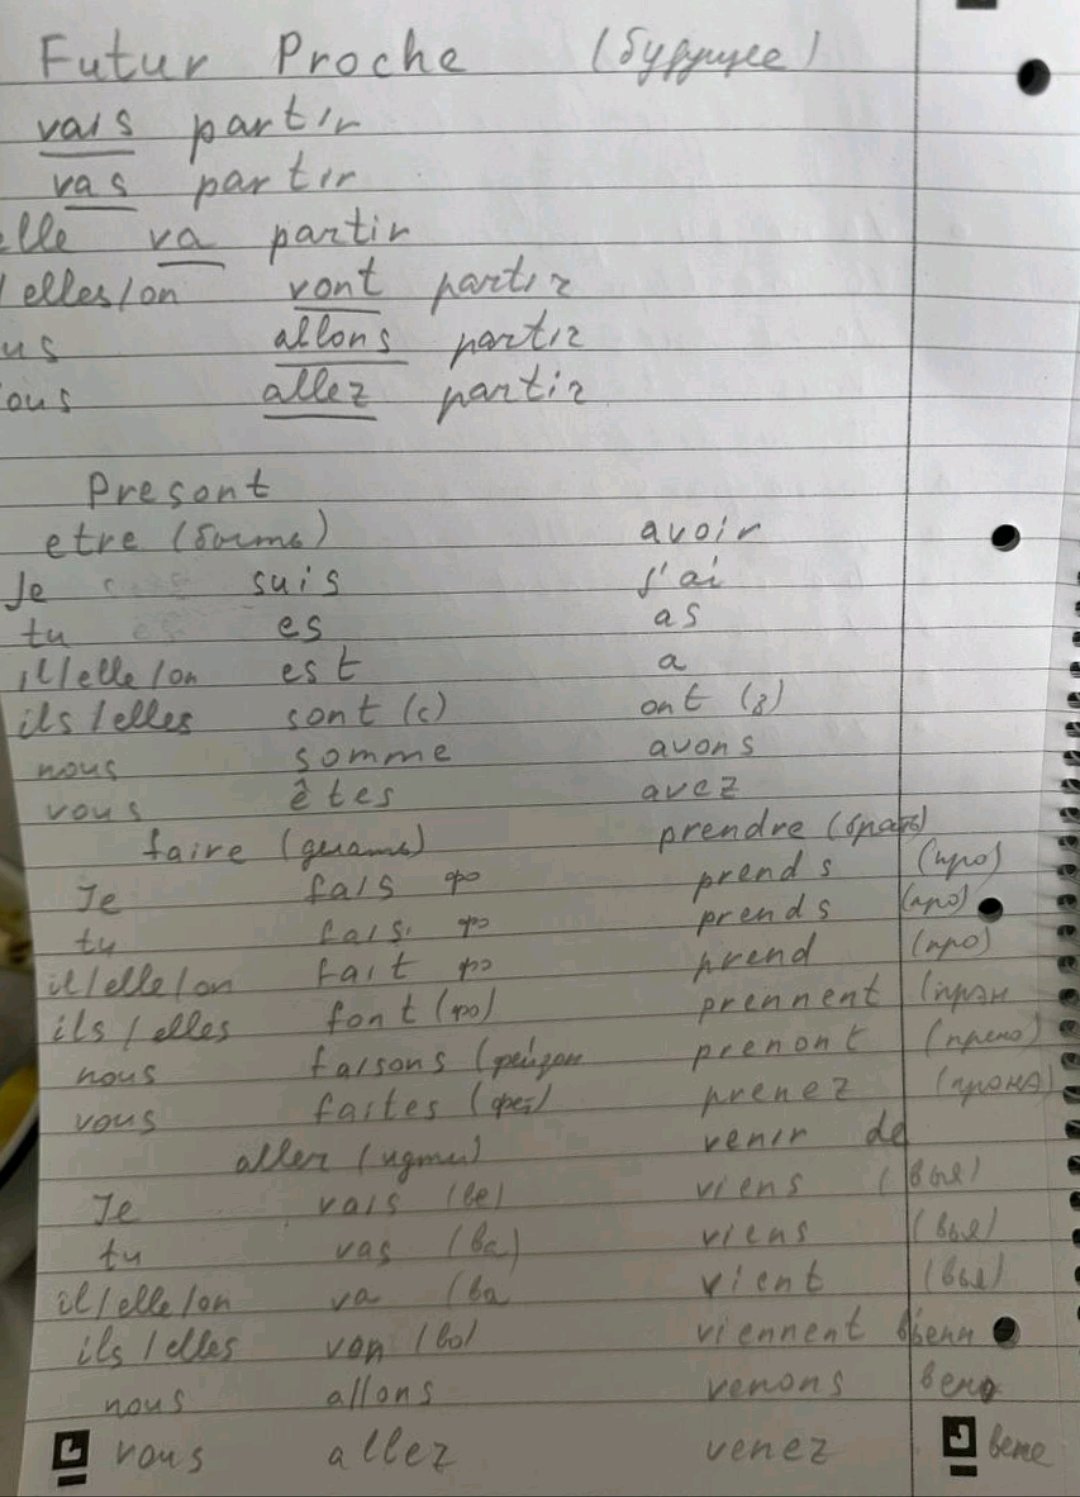 Futur Proche (будущее)
vais partir
vas partir
elle va partir
/ elles/on vont partir
us allons partir
ous allez partir
Present
etre (быть) avoir
Je suis j'ai
tu es as
il/elle/on est a
ils/elles sont (с) ont (з)
nous somme avons
vous êtes avez
faire (делать) prendre (брать)
Je fais фэ prends (про)
tu fais фэ prends (про)
il/elle/on fait фэ prend (про)
ils/elles font (фо) prennent (прэн
nous faisons (фейзон prenont (прено)
vous faites (фет) prenez (пронэ)
aller (идти) venir de
Je vais (ве) viens (вья)
tu vas (ва) viens (вья)
il/elle/on va (ва vient (вья)
ils/elles von (во) viennent вьенн
nous allons venons вено
vous allez venez вене